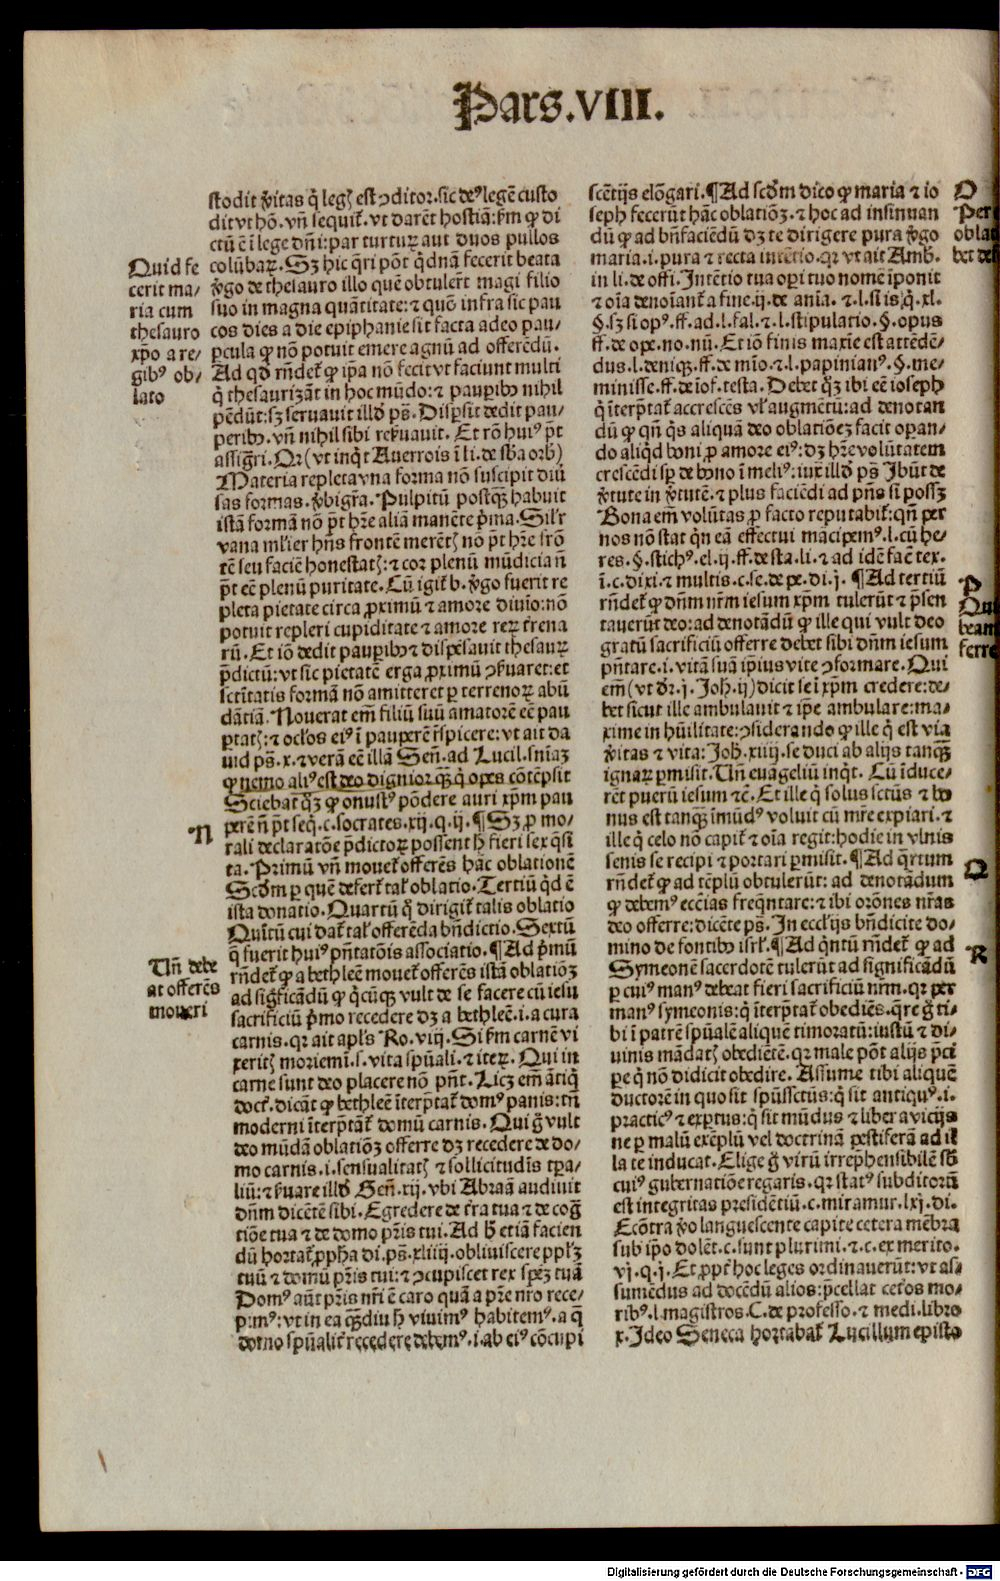 Pars.VIII.
stodit v̄itas q̄ legꝫ est ↄditor.sic deꝰ legē custo
dit vt hō. vn̄ sequit᷑. vt darēt hostiā: ẜm ꝙ di
ctū ē ī lege dn̄i: par turtuꝝ aut duos pullos
colūbaꝝ. Sꝫ hic q̄ri pōt qͥdnā fecerit beata
v̄go de thesauro illo quē obtuler̄t magi filio
suo in magna quātitate: ⁊ quō infra sic pau
cos dies a die epiphanie sit facta adeo pau/
ꝑcula ꝙ nō potuit emere agnū ad offerēdū.
Ad qd̄ rn̄det᷑ ꝙ ip̄a nō fecit vt faciunt multi
q̄ thesaurizāt in hoc mūdo: ⁊ pauꝑibꝰ nihil
pēdūt: sꝫ seruauit illd̓ ps̄. Disꝑsit dedit pau/
peribꝰ. vn̄ nihil sibi reẜuauit. Et rō huiꝰ pt̄
assiḡri. Qꝛ (vt inq̄t Auerrois ī li. de sb̄a orb̓)
Materia repleta vna forma nō suscipit diū
sas formas. v̄bigr̄a. Pulpitū postqꝫ habuit
istā formā nō pt̄ hr̄e aliā manēte p̄ma. Silr̓
vana mlier hn̄s frontē meretͥ nō pt̄ hr̄e frō
tē seu faciē honestatꝫ: ⁊ cor plenū mūdicia n̄
pt̄ eē plenū puritate. Cū igit᷑ b. v̄go fuerit re
pleta pietate circa ꝓximū ⁊ amore diuīo: nō
potuit repleri cupiditate ⁊ amore reꝝ t̄rena
rū. Et iō dedit pauꝑibꝰ ⁊ dispēsauit thesauꝝ
p̄dictū: vt sic pietatē erga ꝓximū ↄẜuaret: et
sctītatis formā nō amitteret ꝑ terrenoꝝ abū
dātiā. Nouerat em̄ filiū suū amatorē eē pau
ꝑtatꝫ: ⁊ oclos eiꝰ ī pauꝑerē r̄spicere: vt ait da
uid ps̄. x. ⁊ verā eē illā Sen̄. ad Lucil. sniāꝫ
ꝙ nemo aliꝰ est deo dignior qꝫ qͥ opes cōtēpsit
Sciebat qͥꝫ ꝙ onustꝰ pōdere auri xp̄m pau
perē n̄ pt̄ seq̄. c. socrates. xij. q. ij. ¶ Sꝫ ꝓ mo/
rali declaratōe p̄dictoꝝ possent h̄ fieri sex q̄si
ta. Primū vn̄ mouet᷑ offerēs hāc oblationē
Scd̓m ꝑ quē defert᷑ tal̓ oblatio. Tertiū qd̓ ē
ista donatio. Quartū q̄ dirigit᷑ talis oblatio
Quītū cui dat᷑ tal̓ offerēda bn̄dictio. Sextū
q̄ fuerit huiꝰ pn̄tatōis associatio. ¶ Ad p̄mū
rn̄det᷑ ꝙ a bethleē mouet᷑ offerēs istā oblatiōꝫ
ad sig̓ficādū ꝙ q̄cūqꝫ vult de se facere cū iesu
sacrificiū p̄mo recedere dꝫ a bethleē. i. a cura
carnis. qꝛ ait apl̓s Ro. viij. Si ẜm carnē vi
xeritꝫ moriemī. s. vita spūali. ⁊ iteꝝ. Qui in
carne sunt deo placere nō pn̄t. Licꝫ em̄ ātiqͥ
doct᷑. dicāt ꝙ bethleē īterp̄tat᷑ domꝰ panis: tn̄
moderni īterp̄tāt᷑ domū carnis. Qui ḡ vult
deo mūdā oblatiōꝫ offerre dꝫ recedere de do/
mo carnis. i. sensualitatꝫ ⁊ sollicitudīs tp̄a/
liū: ⁊ ẜuare illd̓ Gen̄. xij. vbi Abraā audiuit
dn̄m dicētē sibi. Egredere de t̄ra tua ⁊ de cog̓
tiōe tua ⁊ de domo pr̄is tui. Ad h̄ etiā facien
dū hortat᷑ ꝓpha di. ps̄. xliiij. obliuiscere ppl̓ꝫ
tuū ⁊ domū pr̄is tui: ⁊ ↄcupiscet rex speꝫ tuā
Domꝰ aūt pr̄is nr̄i ē caro quā a pr̄e nr̄o rece/
pimꝰ: vt in ea qꝫdiu h̄ viuimꝰ habitemꝰ. a q̄
domo spūalit᷑ recedere debemꝰ. i. ab eiꝰ cōcupi
Quid fe
cerit ma/
ria cum
thesauro
xp̄o a re/
gibꝰ ob/
lato
N
Un̄ debe
at offerēs
moueri
scētijs elōgari. ¶ Ad scd̓m dico ꝙ maria ⁊ io
seph fecerūt hāc oblatiōꝫ. ⁊ hoc ad insinuan
dū ꝙ ad bn̄faciēdū dꝫ te dirigere pura v̄go
maria. i. pura ⁊ recta intētio. qꝛ vt ait Amb̓.
in li. de offi. Intētio tua oꝑi tuo nomē īponit
⁊ oīa denoīant᷑ a fine. ij. de aīa. ⁊. l. si is q̄. xl.
§. sꝫ si opꝰ. ff. ad. l. fal. ⁊. l. stipulatio. §. opus
ff. de ope. no. nū. Et iō finis maxie est attēdē/
dus. l. deniqꝫ. ff. de mīo. ⁊. l. papinianꝰ. §. me/
minisse. ff. de iof. testa. Debet qͥꝫ ibi eē ioseph
q̄ īterp̄tat᷑ accrescēs vl̓ augmētū: ad denotan
dū ꝙ qn̄ q̄s aliquā deo oblatiōeꝫ facit oꝑan/
do aliqd̓ boni ꝓ amore eiꝰ: dꝫ hr̄e volūtatem
crescēdi sp̄ de bono ī meliꝰ: iux̄ illd̓ ps̄ Ibūt de
v̄tute in v̄tutē. ⁊ plus faciēdi ad pn̄s si possꝫ
Bona em̄ volūtas ꝓ facto reputabit᷑: qn̄ per
nos nō stat qn̄ eā effectui mācipemꝰ. l. cū he/
res. §. stichꝰ. el. ij. ff. de sta. li. ⁊ ad idē fac̄ tex.
ī. c. dixi. ⁊ multis. c. se. de pe. di. j. ¶ Ad tertiū
rn̄det᷑ ꝙ dn̄m nr̄m iesum xp̄m tulerūt ⁊ p̄sen
tauerūt deo: ad denotādū ꝙ ille qui vult deo
gratū sacrificiū offerre debet sibi dn̄m iesum
pn̄tare. i. vitā suā ipsius vite ↄformare. Qui
em̄ (vt dr̄. j. Joh̓. ij) dicit se ī xp̄m credere: de/
bet sicut ille ambulauit ⁊ ip̄e ambulare: ma/
xime in hūilitate: ↄsiderando ꝙ ille q̄ est via
v̄itas ⁊ vita: Joh̓. xiiij. se duci ab alijs tanqꝫ
ignaꝝ ꝑmisit. Un̄ euāgeliū inq̄t. Cū īduce/
rēt puerū iesum ⁊c̄. Et ille q̄ solus sctūs ⁊ bo
nus est tanqꝫ īmūdꝰ voluit cū mr̄e expiari. ⁊
ille q̄ celo nō capit᷑ ⁊ oīa regit: hodie in vlnis
senis se recipi ⁊ portari ꝑmisit. ¶ Ad q̄rtum
rn̄det᷑ ꝙ ad tēplū obtulerūt: ad denotādum
ꝙ debemꝰ ecc̄ias freq̄ntare: ⁊ ibi orōnes nr̄as
deo offerre: dicēte ps̄. In eccl̓ijs bn̄dicite do/
mino de fontibꝰ isrl̓. ¶ Ad q̄ntū rn̄det᷑ ꝙ ad
Symeonē sacerdotē tulerūt ad significādū
ꝑ cuiꝰ manꝰ debeat fieri sacrificiū nr̄m. qꝛ per
manꝰ symeonis: q̄ īterp̄tat᷑ obediēs. q̄re ḡ ti/
bi ī patrē spūalē aliquē timoratū: iustū ⁊ di/
uinis mādatꝫ obediētē. qꝛ male pōt alijs p̄ci
pe q̄ nō didicit obedire. Assume tibi aliquē
ductorē in quo sit spūssctūs: q̄ sit antiquꝰ. i.
practicꝰ ⁊ exꝑtus: q̄ sit mūdus ⁊ liber a vicijs
ne ꝑ malū exēplū vel doctrinā pestiferā ad il
la te inducat. Elige ḡ virū irrep̄hensibilē sb̓
cuiꝰ gubernatiōe regaris. qꝛ statꝰ subditorū
est integritas presidētiū. c. miramur. lxj. di.
Ecōtra v̄o languescente capite cetera mēbra
sub ip̄o dolēt. c. sunt plurimi. ⁊. c. ex merito.
vj. q. j. Et ꝓpt᷑ hoc leges ordinauerūt: vt as/
sumēdus ad docēdū alios: p̄cellat cet᷑os mo/
ribꝰ. l. magistros. C. de professo. ⁊ medi. libro
x. Ideo Seneca hortabat᷑ Lucillum episto
O
Per
oblat
bet de
P
Qui
beam
ferre
Q
R
Digitalisierung gefördert durch die Deutsche Forschungsgemeinschaft - DFG